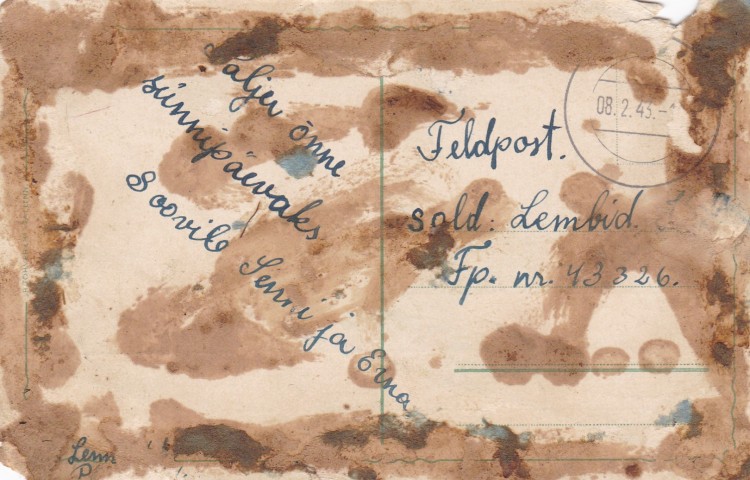 Palju õnne
sünnipäevaks
Soovib Senni ja Erna
Feldpost.
08.2.43.-
sold: Lembid.
Fp. nr. 43326.